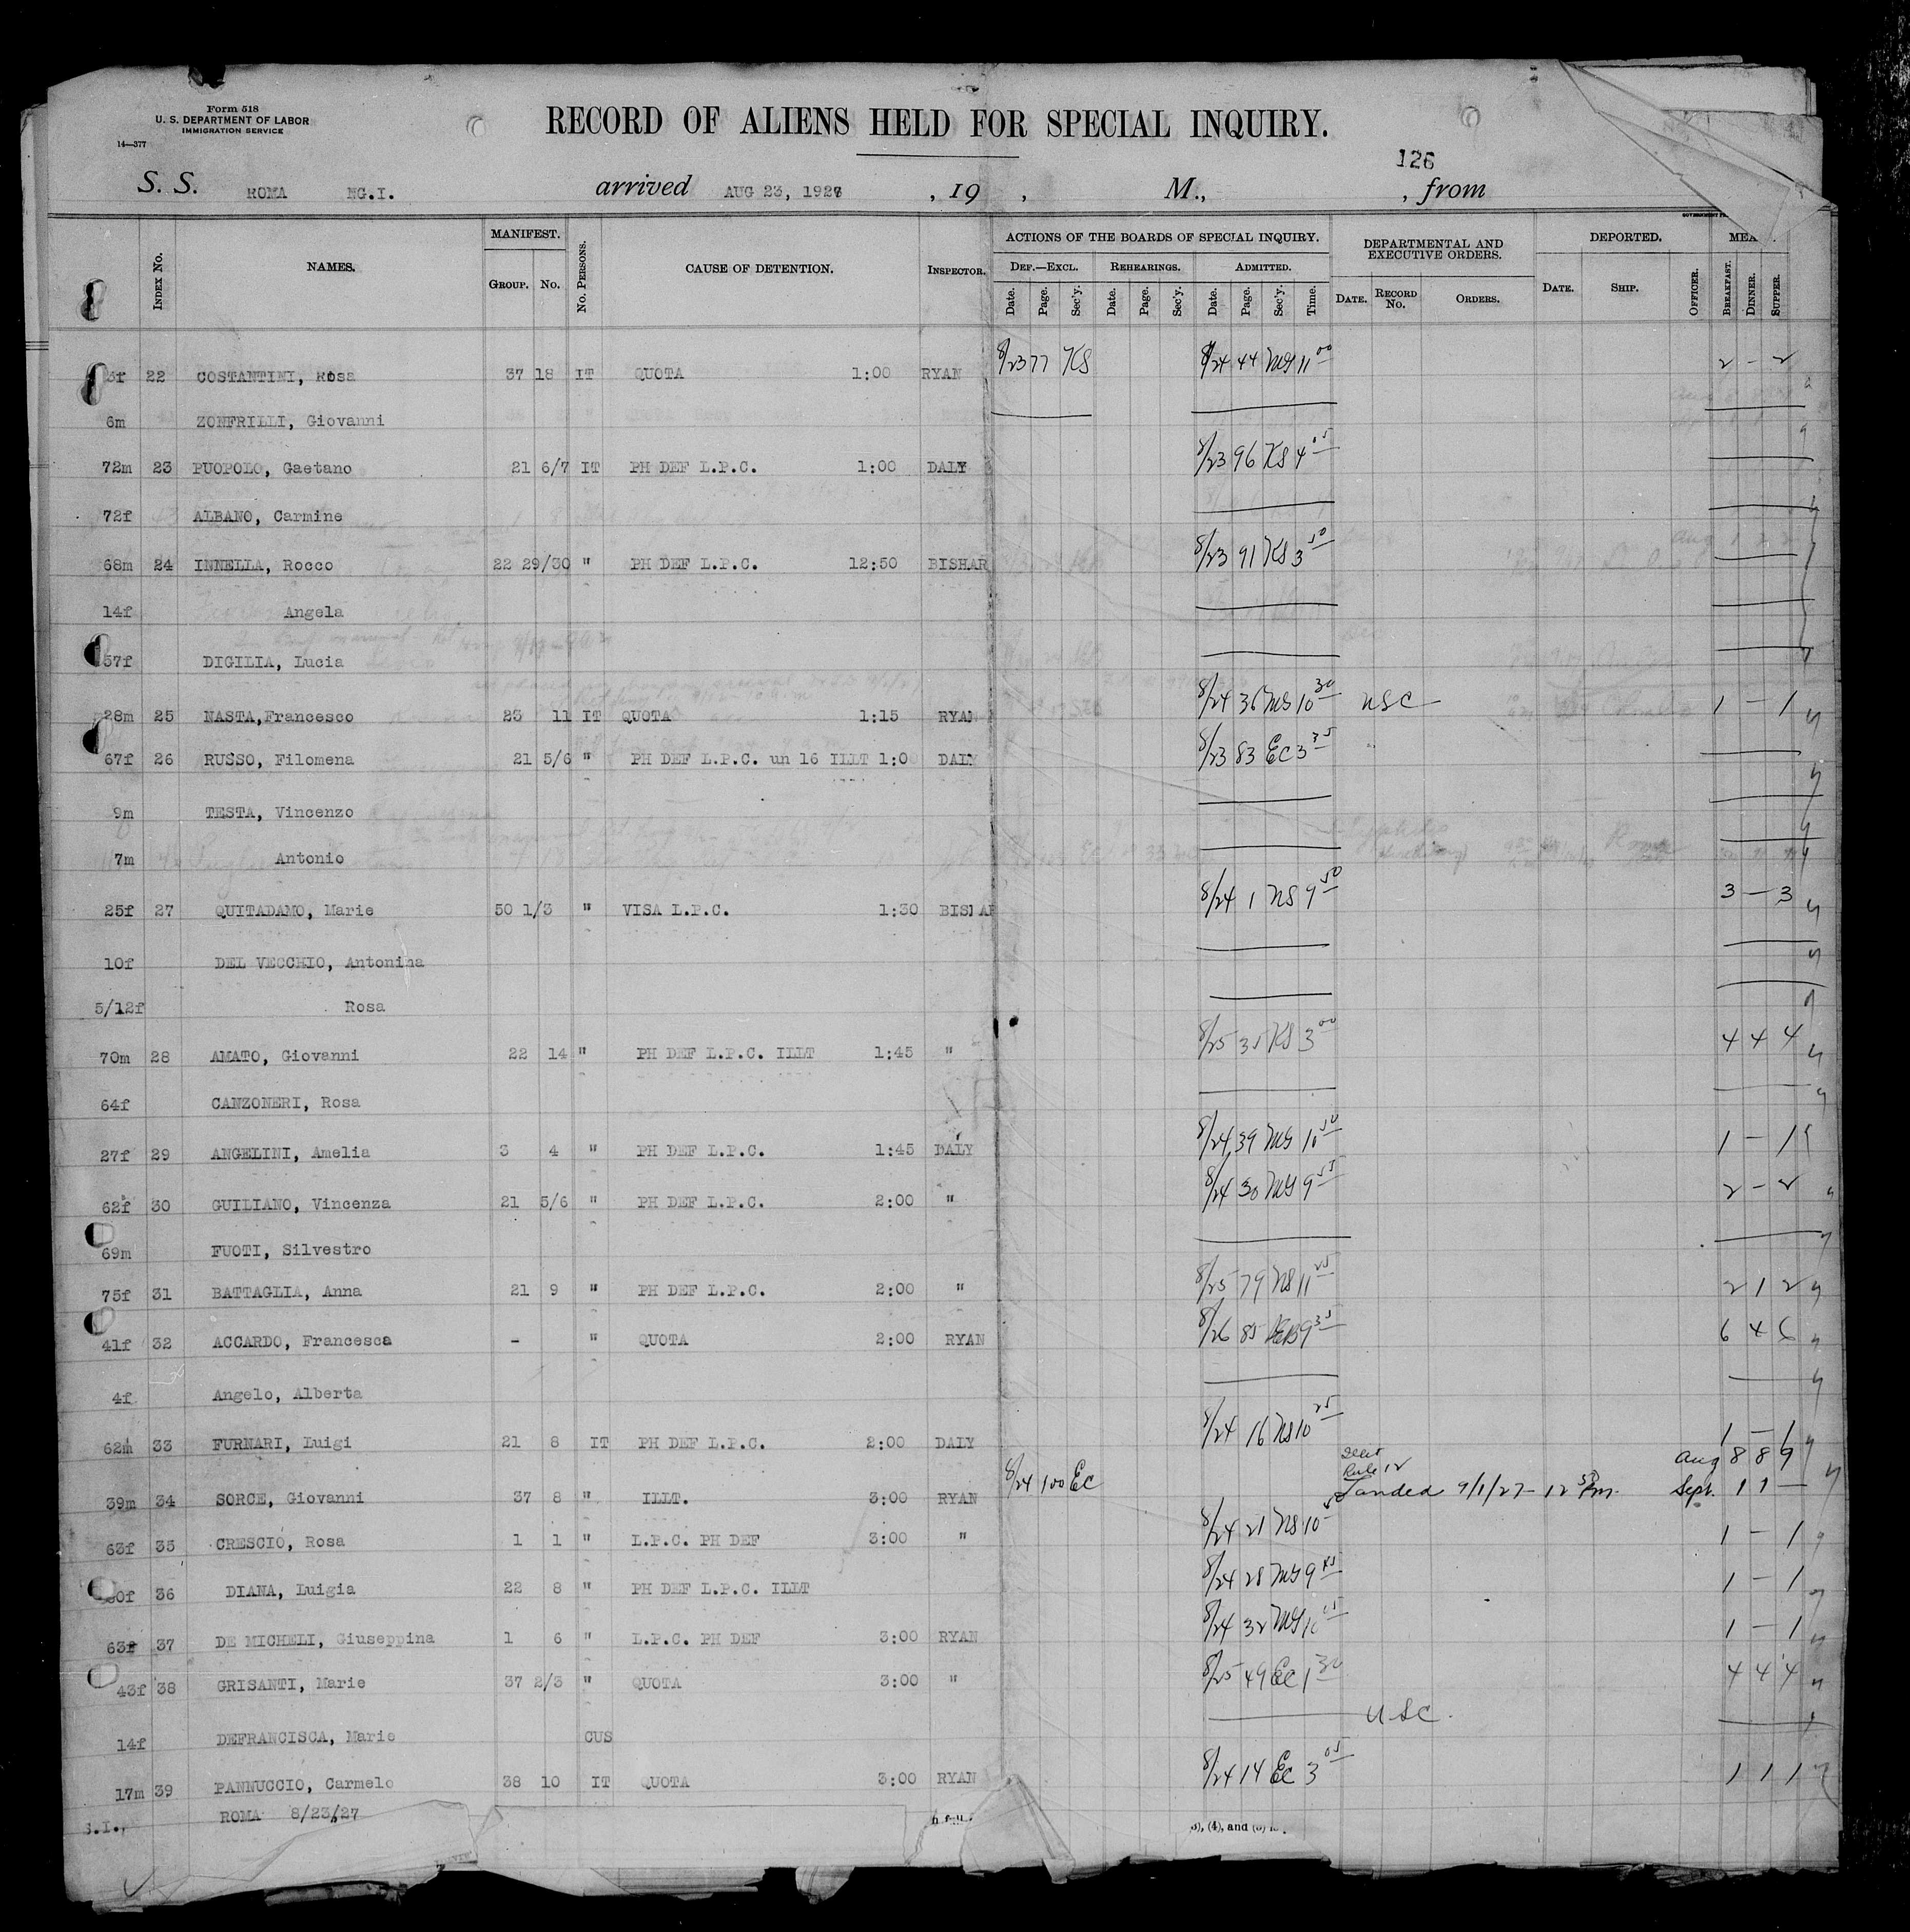 Form 518
U. S. DEPARTMENT OF LABOR
IMMIGRATION SERVICE
14—377
RECORD OF ALIENS HELD FOR SPECIAL INQUIRY.
126
S. S. ROMA NG.I. arrived AUG 23, 1927 , 19 , M., , from
INDEX No. NAMES. MANIFEST. GROUP. No. No. PERSONS. CAUSE OF DETENTION. INSPECTOR. ACTIONS OF THE BOARDS OF SPECIAL INQUIRY. DEPARTMENTAL AND EXECUTIVE ORDERS. DEPORTED.
DEF.—EXCL. REHEARINGS. ADMITTED.
Date. Page. Sec'y. Date. Page. Sec'y. Date. Page. Sec'y. Time. DATE. RECORD No. ORDERS. DATE. SHIP. OFFICER. BREAKFAST. DINNER. SUPPER.
22 COSTANTINI, Rosa 37 18 IT QUOTA 1:00 RYAN 8/23 77 KS 8/24 44 MS 11 00 2 — 2
6m ZONFRILLI, Giovanni
72m 23 PUOPOLO, Gaetano 21 6/7 IT PH DEF L.P.C. 1:00 DALY 8/23 96 KS 4 05
72f ALBANO, Carmine
68m 24 INNELLA, Rocco 22 29/30 " PH DEF L.P.C. 12:50 BISHAR 8/23 91 KS 3 50
14f Angela
57f DIGILIA, Lucia
28m 25 NASTA,Francesco 23 11 IT QUOTA 1:15 RYAN 8/24 36 MS 10 30 USC 1 — 1
67f 26 RUSSO, Filomena 21 5/6 " PH DEF L.P.C. un 16 ILLT 1:0 DALY 8/23 83 EC 3 35
9m TESTA, Vincenzo
7m Antonio
25f 27 QUITADAMO, Marie 50 1/3 " VISA L.P.C. 1:30 8/24 1 NS 9 50 3 — 3
10f DEL VECCHIO, Antonina
5/12f Rosa
70m 28 AMATO, Giovanni 22 14 " PH DEF L.P.C. ILLT 1:45 " 8/25 35 KS 3 00 4 4 4
64f CANZONERI, Rosa
27f 29 ANGELINI, Amelia 3 4 " PH DEF L.P.C. 1:45 DALY 8/24 39 MS 10 50 1 — 1
62f 30 GUILIANO, Vincenza 21 5/6 " PH DEF L.P.C. 2:00 " 8/24 30 MS 9 55 2 — 2
69m FUOTI, Silvestro
75f 31 BATTAGLIA, Anna 21 9 " PH DEF L.P.C. 2:00 " 8/25 79 NS 11 25 2 1 2
41f 32 ACCARDO, Francesca - " QUOTA 2:00 RYAN 8/26 85 9 35 6 4 6
4f Angelo, Alberta
62m 33 FURNARI, Luigi 21 8 IT PH DEF L.P.C. 2:00 DALY 8/24 16 NS 10 25 1 — 1
Rule 12 Aug 8 8 9
39m 34 SORCE, Giovanni 37 8 " ILLT. 3:00 RYAN 8/24 100 EC Landed 9/1/27 — 12 50 Pm. Sept. 1 1 —
63f 35 CRESCIO, Rosa 1 1 " L.P.C. PH DEF 3:00 " 8/24 21 NS 10 1 — 1
36 DIANA, Luigia 22 8 " PH DEF L.P.C. ILLT 8/24 28 MS 9 45 1 — 1
63f 37 DE MICHELI, Giuseppina 1 6 " L.P.C. PH DEF 3:00 RYAN 8/24 32 MS 10 05 1 — 1
43f 38 GRISANTI, Marie 37 2/3 " QUOTA 3:00 " 8/25 49 EC 1 30 4 4 4
14f DEFRANCISCA, Marie CUS USC.
17m 39 PANNUCCIO, Carmelo 38 10 IT QUOTA 3:00 RYAN 8/24 14 EC 3 05 1 1 1
S.I., ROMA 8/23/27